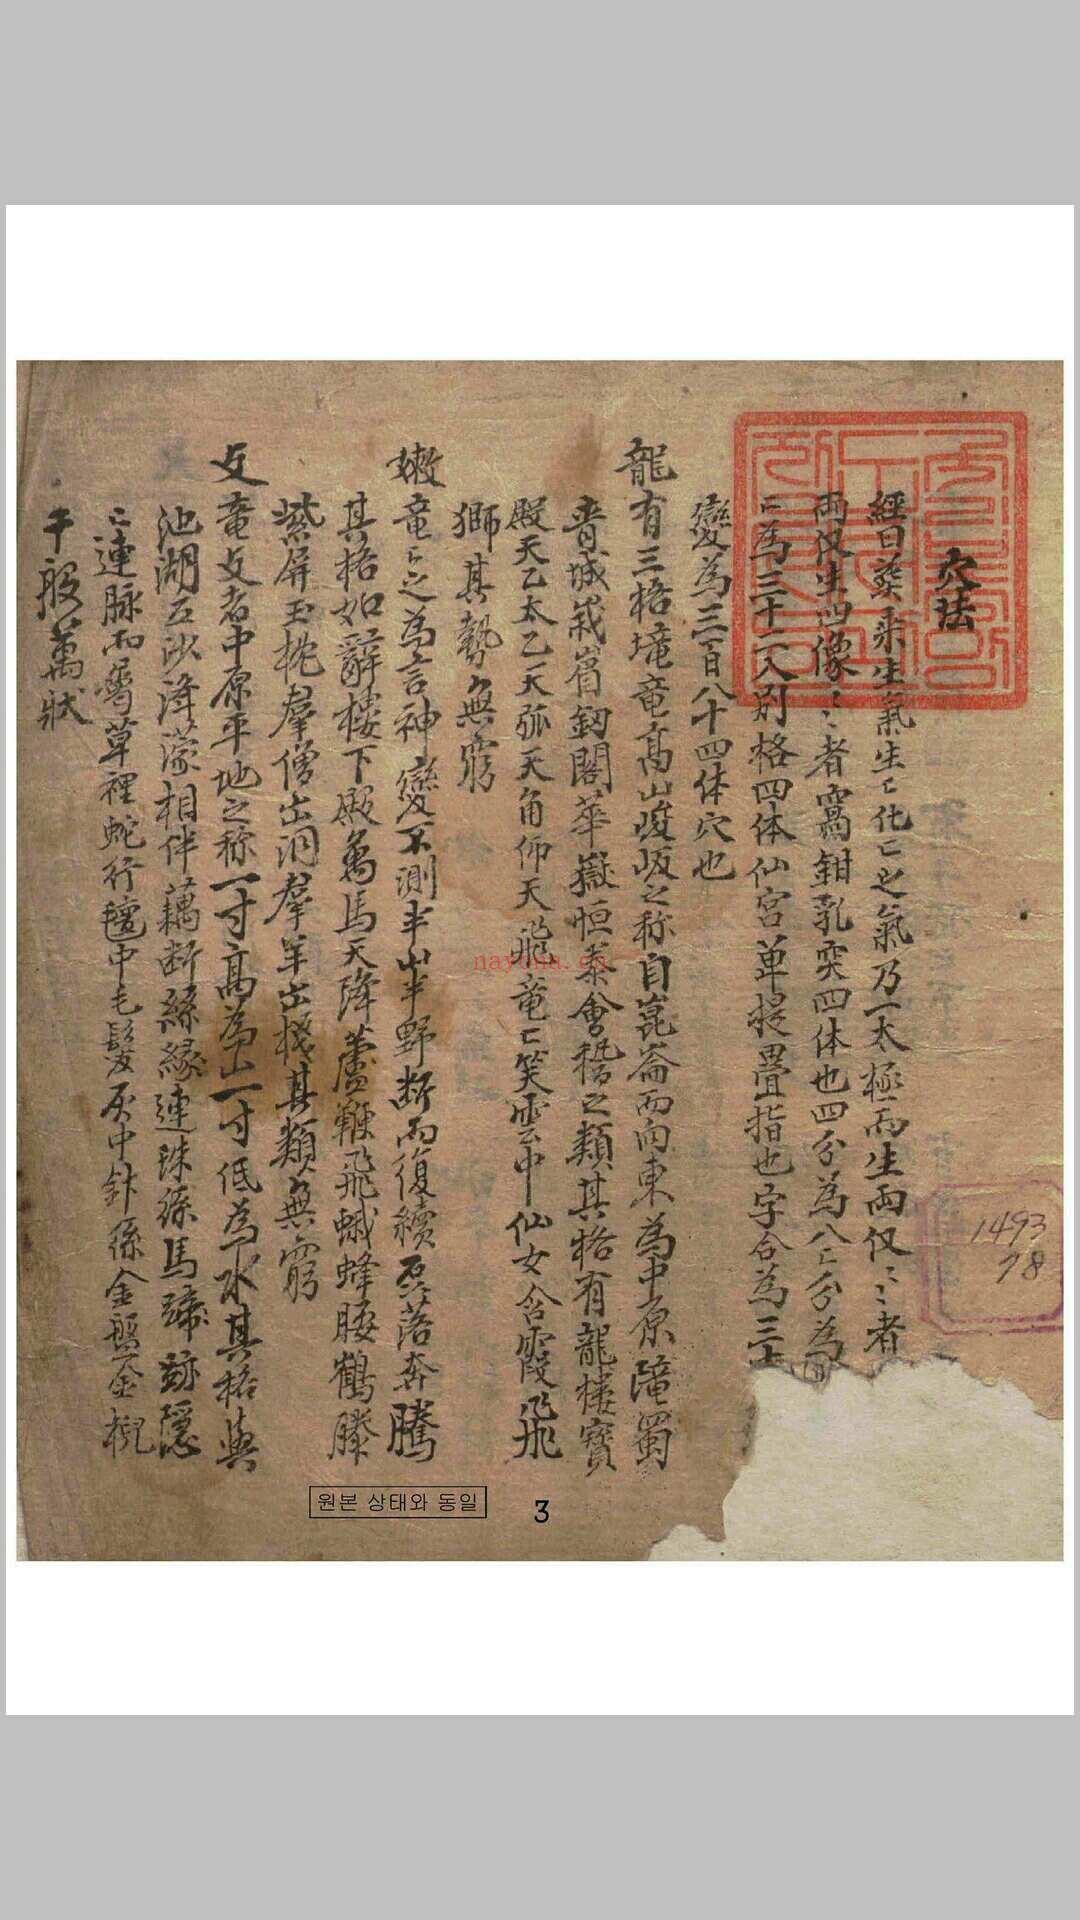 穴法
經曰葬乘生氣生〻化〻之氣乃一太極而生兩仪〻者
兩仪生四像〻〻者窩鉗乳突四体也四分為八〻分為
〻為三十二入別格四体仙宮单提疊指也字合為三十
變為三百八十四体穴也
龍有三格壠竜高山峻岅之称自崑崙而向東為中原隴蜀
青城峩眉釼閣華嶽恒泰會稽之類其格有龍樓寶
殿天乙太乙天弧天角仰天飛竜〻笑雲中仙女含霞飛
獅其勢無窮
嫰竜〻之為言神變不測半山半野断而復續起落奔騰
其格如辭樓下殿萬馬天降蘆鞭飛蛾蜂腰鶴膝
紫屏玉枕羣僧出洞羣羊出棧其類無窮
支竜支者中原平地之称一寸高為山一寸低為水其格與
池湖互沙降濛相伴藕断絲縁連珠絲馬蹄跡隱
〻連脉而驚草裡蛇行氊中毛髮灰中針絲金盤金椀
千般萬狀
1493
78
nayona.cn
원본 상태와 동일
3